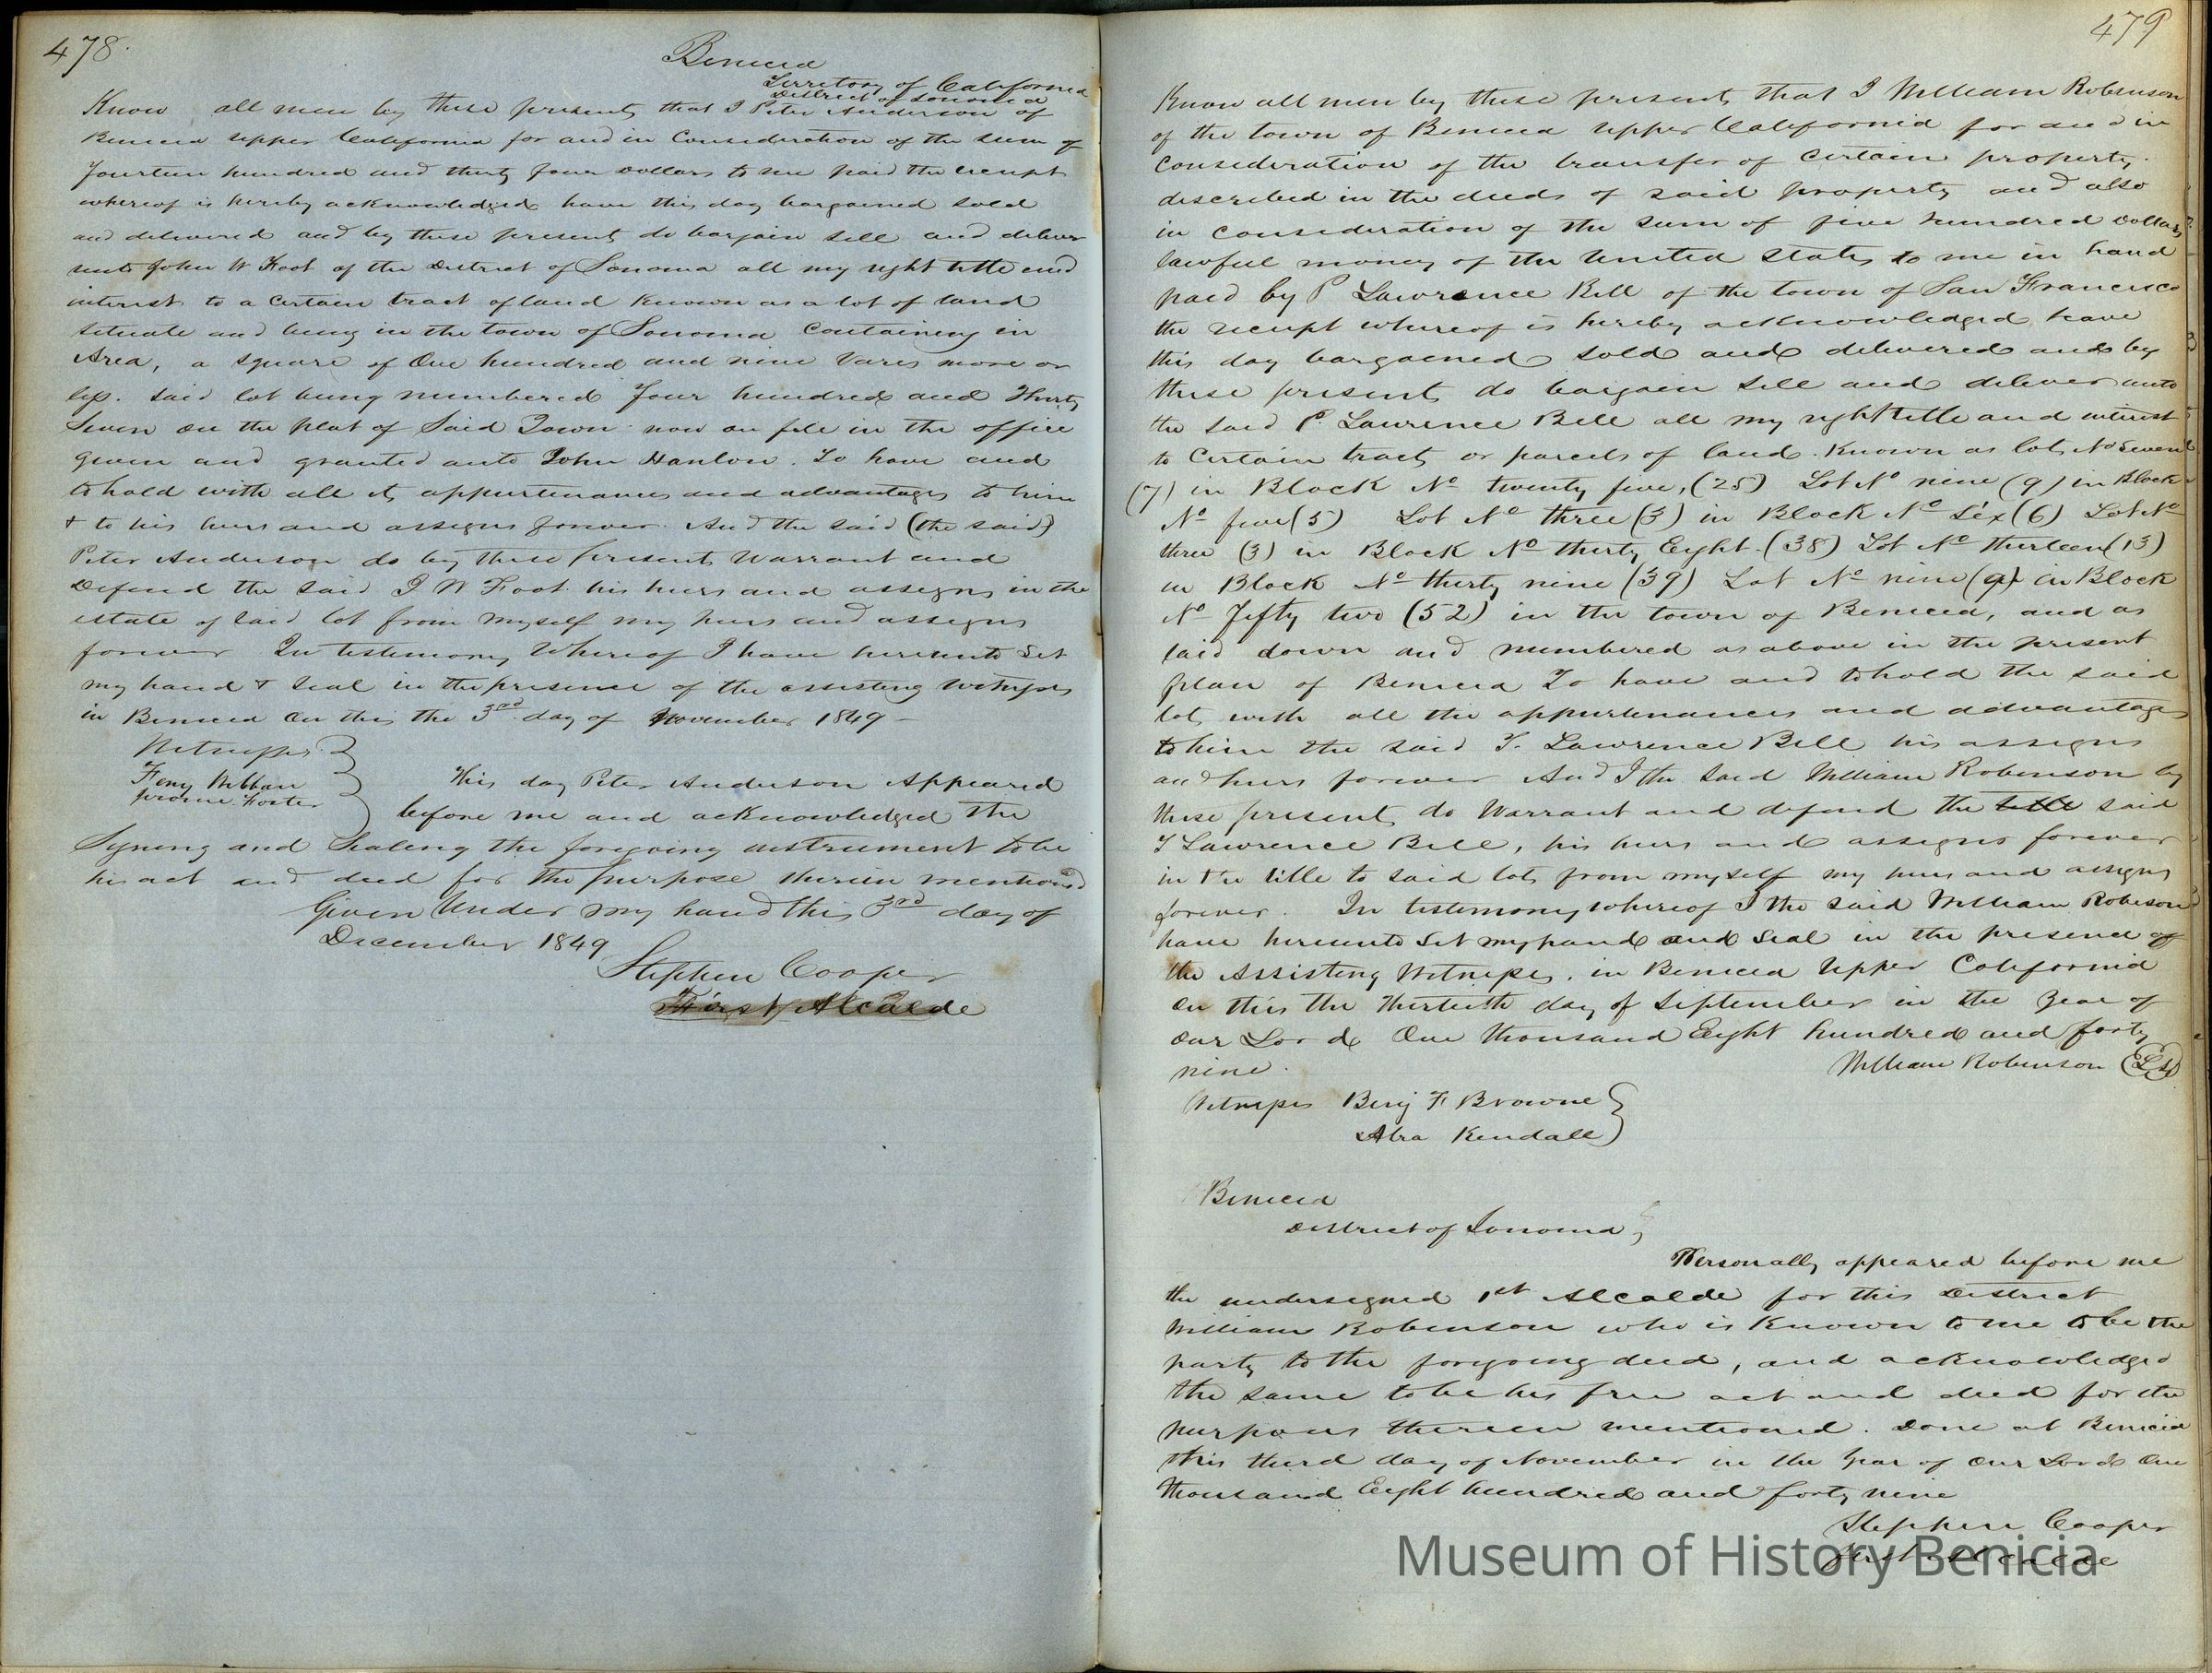 478.
Benicia
Territory of California
District of Sonoma
Know all men by these presents that I Peter Anderson of
Benicia upper California for and in Consideration of the sum of
Fourteen hundred and thirty four Dollars to me paid the receipt
whereof is hereby acknowledged have this day bargained sold
and delivered and by these presents do bargain sell and deliver
unto John W Foot of the District of Sonoma all my right title and
interest to a Certain tract of land Known as a lot of land
situate and being in the town of Sonoma Containing in
Area, a square of One hundred and nine Varas more or
less. said lot being numbered Four hundred and Thirty
Seven on the plat of Said Town now on file in the office
given and granted unto John Hanlon. To have and
to hold with all its appurtenances and advantages to him
& to his heirs and assigns forever. And the said (the said)
Peter Anderson do by these presents Warrant and
Defend the said J W Foot his heirs and assigns in the
estate of said lot from myself my heirs and assigns
forever In testimony Whereof I have hereunto Set
my hand & Seal in the presence of the assisting witnesses
in Benicia On this the 3rd day of November 1849 –
Witnesses
Foster
This day Peter Anderson Appeared
before me and acknowledged the
Signing and Sealing the foregoing instrument to be
his act and deed for the purpose therein mentioned
Given Under my hand this 3rd day of
December 1849
Stephen Cooper
First Alcalde
479
Know all men by these presents that I William Robinson
of the town of Benicia upper California for and in
Consideration of the transfer of Certain property
described in the deeds of said property and also
in consideration of the sum of five hundred Dollars
lawful money of the United States to me in hand
paid by P Lawrence Bell of the town of San Francisco
the receipt whereof is hereby acknowledged have
this day bargained sold and delivered and by
these presents do bargain sell and deliver unto
the said P. Lawrence Bell all my right title and interest
to Certain tracts or parcels of land. Known as lots No Seven
(7) in Block No twenty five, (25) Lot No nine (9) in Block
No five (5) Lot No three (3) in Block No Six (6) Lot No
three (3) in Block No thirty Eight (38) Lot No thirteen (13)
in Block No thirty nine (39) Lot No nine (9) in Block
No Fifty two (52) in the town of Benicia, and as
laid down and numbered as above in the present
plan of Benicia To have and to hold the said
lots with all the appurtenances and advantages
to him the said T. Lawrence Bell his assigns
and heirs forever And I the Said William Robinson by
these presents do Warrant and defend the title said
T Lawrence Bell, his heirs and assigns forever
in the title to said lots from myself my heirs and assigns
forever. In testimony whereof I the said William Robinson
have hereunto Set my hand and Seal in the presence of
the Assisting Witnesses. in Benicia Upper California
On this the thirtieth day of September in the Year of
our Lord One thousand Eight hundred and forty
nine.
William Robinson (LS)
Witnesses Benj F Browne
Kendall
Benicia
District of Sonoma
Personally appeared before me
the undersigned 1st Alcalde for this District
William Robinson who is Known to me to be the
party to the foregoing deed, and acknowledged
the same to be his free act and deed for the
purposes therein mentioned. Done at Benicia
this third day of November in the Year of Our Lord One
thousand Eight hundred and forty nine
Stephen Cooper
First Alcalde
Museum of History Benicia